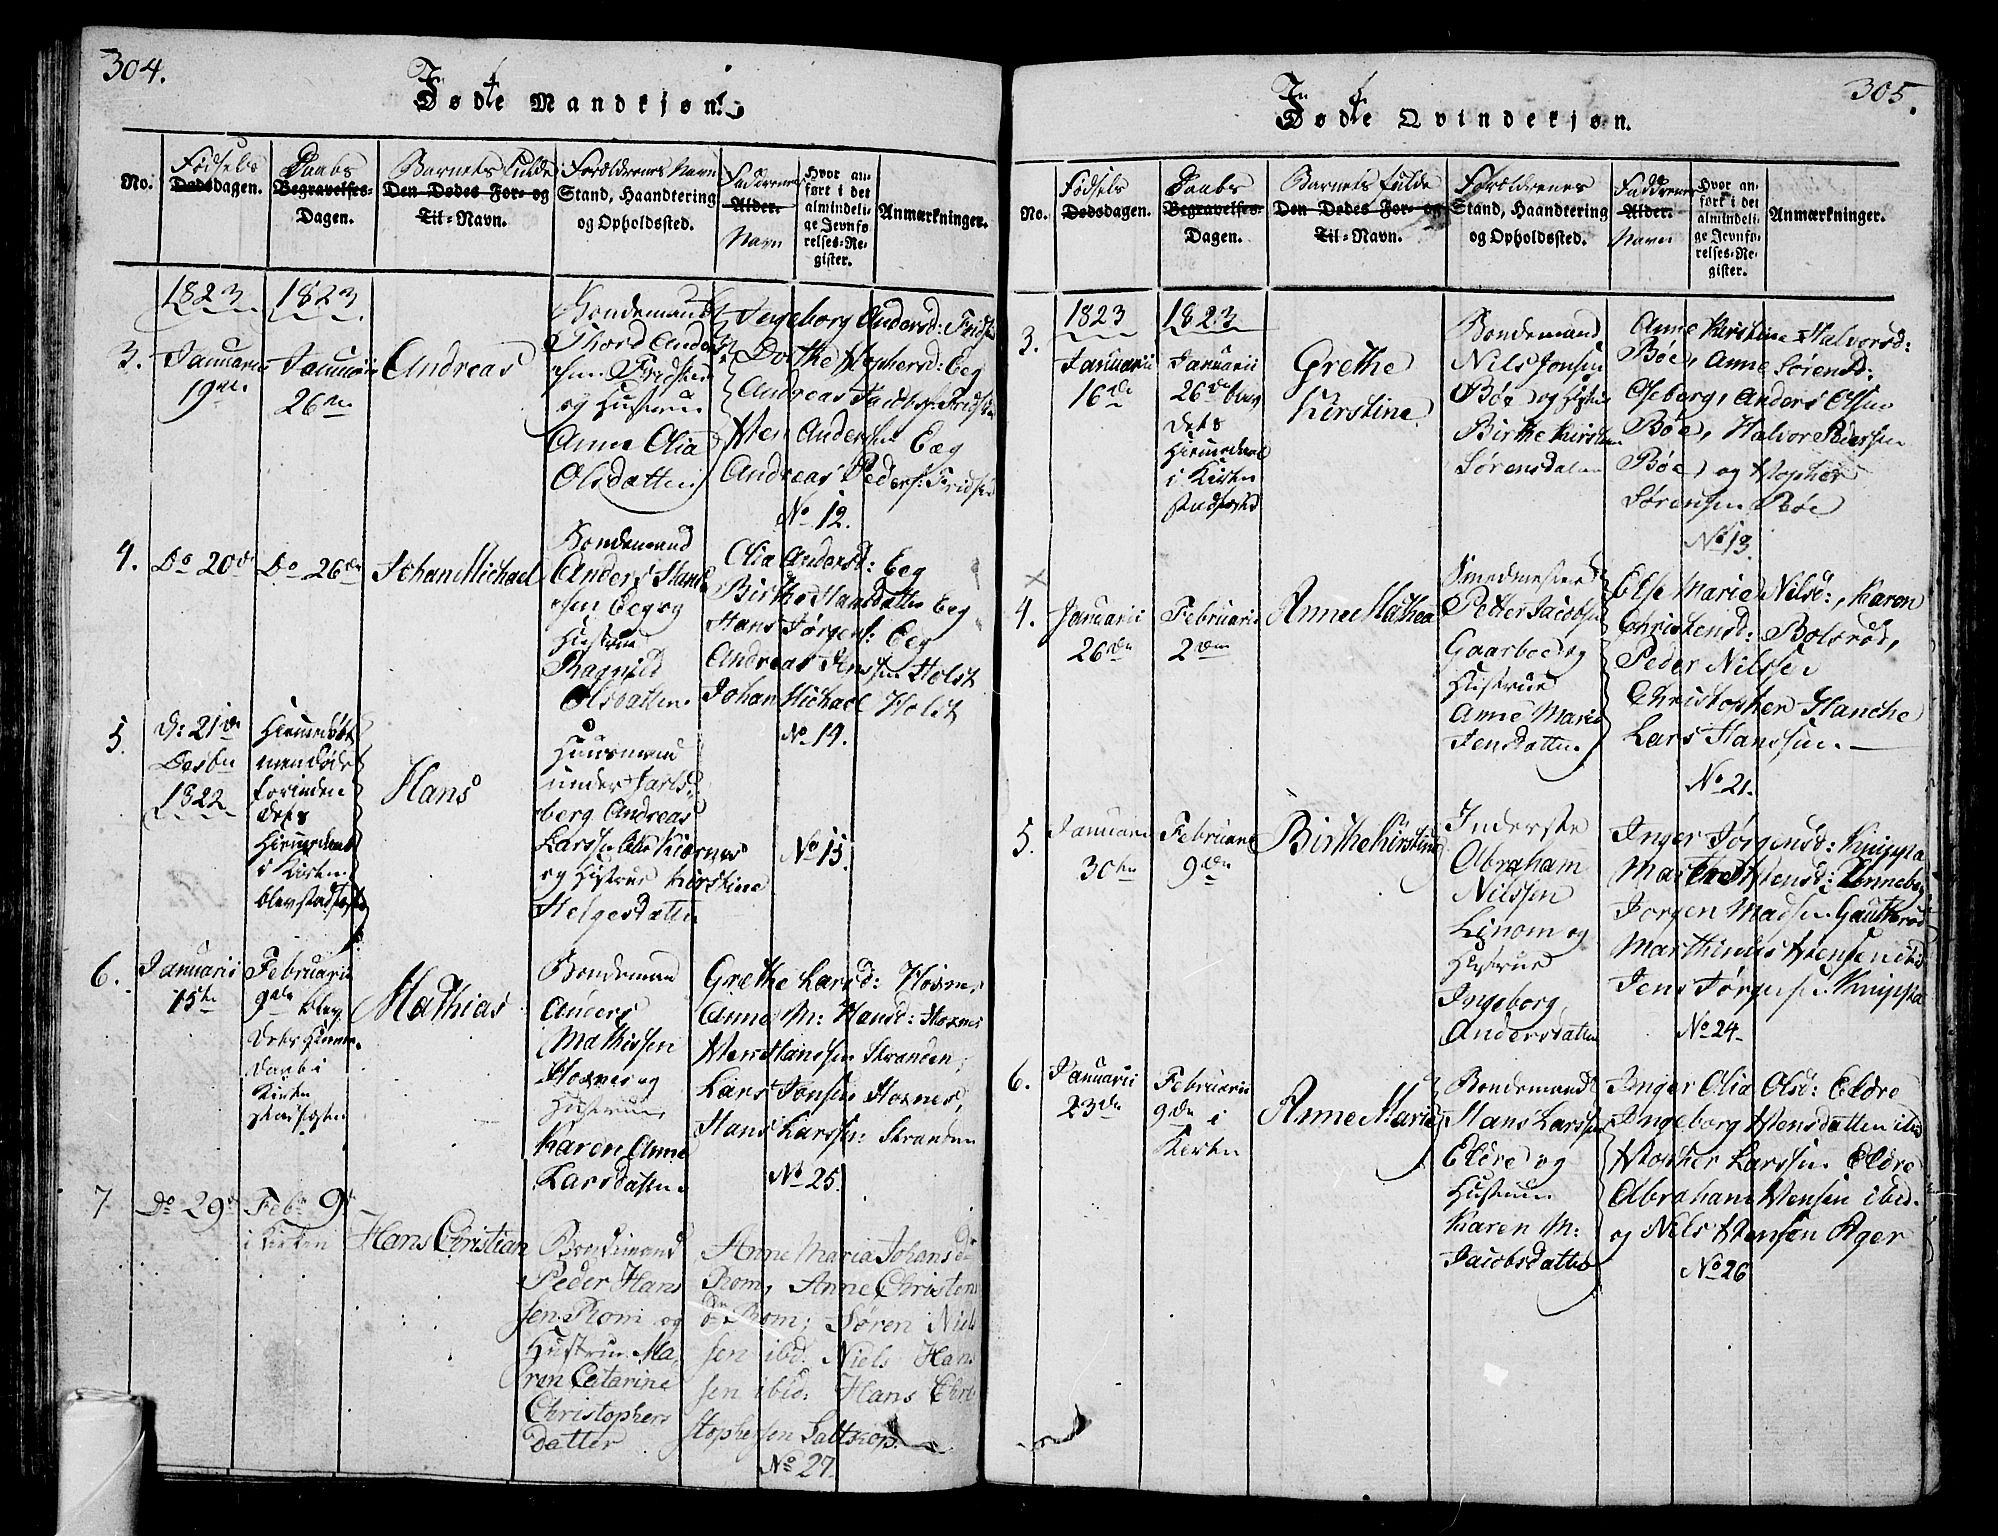 304.
Føfte Mandkjøn.
No.
Fødsels
Dødsdagen.
Daabs
Begravelses-
Dagen.
Barnets fulde
Den Dødes For- og
Til-Navn.
Forældrenes Navn
Stand, Haandtering
og Opholdssted.
Faddrenes
Alder.
Navn
Hvor an-
ført i det
almindeli-
ge Jevnfø-
relses-Re-
gister.
Anmærkninger.
1823
1823
3.
Januarii
19de
Januarii
26de
Andreas
Bondemand
Thord Ander
sen Fridsøe
og Hustrue
Anne Olia
Olsdatter
Ingeborg Andersd:
Dorthe Stophersd: Eeg
Andreas Jacobs:
Sten Andersen Eeg
Andreas Peders:
No 12.
4.
Do 20de
Do 26de
Johan Michael
Bondemand
Anders Hand
sen Eeg og
Hustrue
Ragnild
Olsdatter
Olia Andersd: Eeg
Birthe Hansdatter Eeg
Hans Jørgens: Eeg
Andreas Jensen Holst
Johan Michael Holst
No 14.
5.
d: 21de
Decbr
1822
Hiemmedøbt
i Kirken
Hans
Huusmand
under Jarls-
berg Andreas
Larssen
og Hustrue Kirstine
Helgesdatter
No 15.
6.
Januarii
15de
Februarii
9de
Kirken
Mathias
Bondemand
Anders
Mathissen
Hoxnes og
Hustrue
Karen Anne
Larsdatter
Grethe Larsd: Hoxnes
Anne M: Hansd: Hoxnes
Sten Hanssen Stranden,
Lars Jonsen Hoxnes,
Hans Larssen: Stranden
No 25.
7
Do 29de
Feb: 9de
i Kirken
Hans Christian
Bondemand
Peder Hans
sen Rom og
Hustrue Ma
ren Catarine
Christophers
datter
Anne Maria Johansd
Rom, Anne Christens
d. Rom; Søren Niel
sen ibd. Niels Hans
sen ibid: Hans Chri
stophersen Saltkop.
No 27.
305.
Føfte Qvindekjøn.
No.
Fødsels
Dødsdagen.
Daabs
Begravelses-
Dagen.
Barnets fulde
Den Dødes For- og
Til-Navn.
Forældrenes
Stand, Haandtering
og Opholdssted.
Faddrenes
Alder.
Navn
Hvor an-
ført i det
almindeli-
ge Jevnfø-
relses-Re-
gister.
Anmærkninger.
1823
1823
3.
Januarii
16de
Januarii
26de blev
dets
i Kirken
Grethe
Kirstine
Bondemand
Nils Jonsen
Bøe og Hustrue
Birthe Kirstine
Sørensdatter
Anne Kirstine Halvorsd:
Bøe, Anne Sørensd:
Aseberg, Anders Olsen
Bøe, Halvor Pedersen
Bøe og Stopher
Sørensen Bøe
No 13.
4.
Januarii
26de
Februarii
2den
Anne Mathea
Smedmester
Petter Jacobsen
Gaarboe og
Hustrue
Anne Marie
Jensdatter
Else Marie Nilsd:, Karen
Christensd: Bolsrød,
Peder Nilsen
Christopher Hanche
Lars Hanssen.
No 21.
5.
Januarii
30te
Februarii
9de
Birthe Kirstine
Inderste
Abraham
Nilssen
Linom og
Hustrue
Ingeborg
Andersdatter
Inger Jørgensd: Knippa
Marthe Stensd:
Jørgen Madsen
Marthinus Stensen ibid
Jens Jørgensen Knippa
No 24.
6.
Januarii
23de
Februarii
9de i
Kirken
Anne Marie
Bondemand
Hans Larssen
Ekre og
Hustrue
Karen M:
Jacobsdatter
Inger Olia Olsd: Ekre
Ingeborg Stensdatter ibid
Stopher Larssen Ekre
Abraham Stensen ibid.
og Nils Stensen Ager
No 26